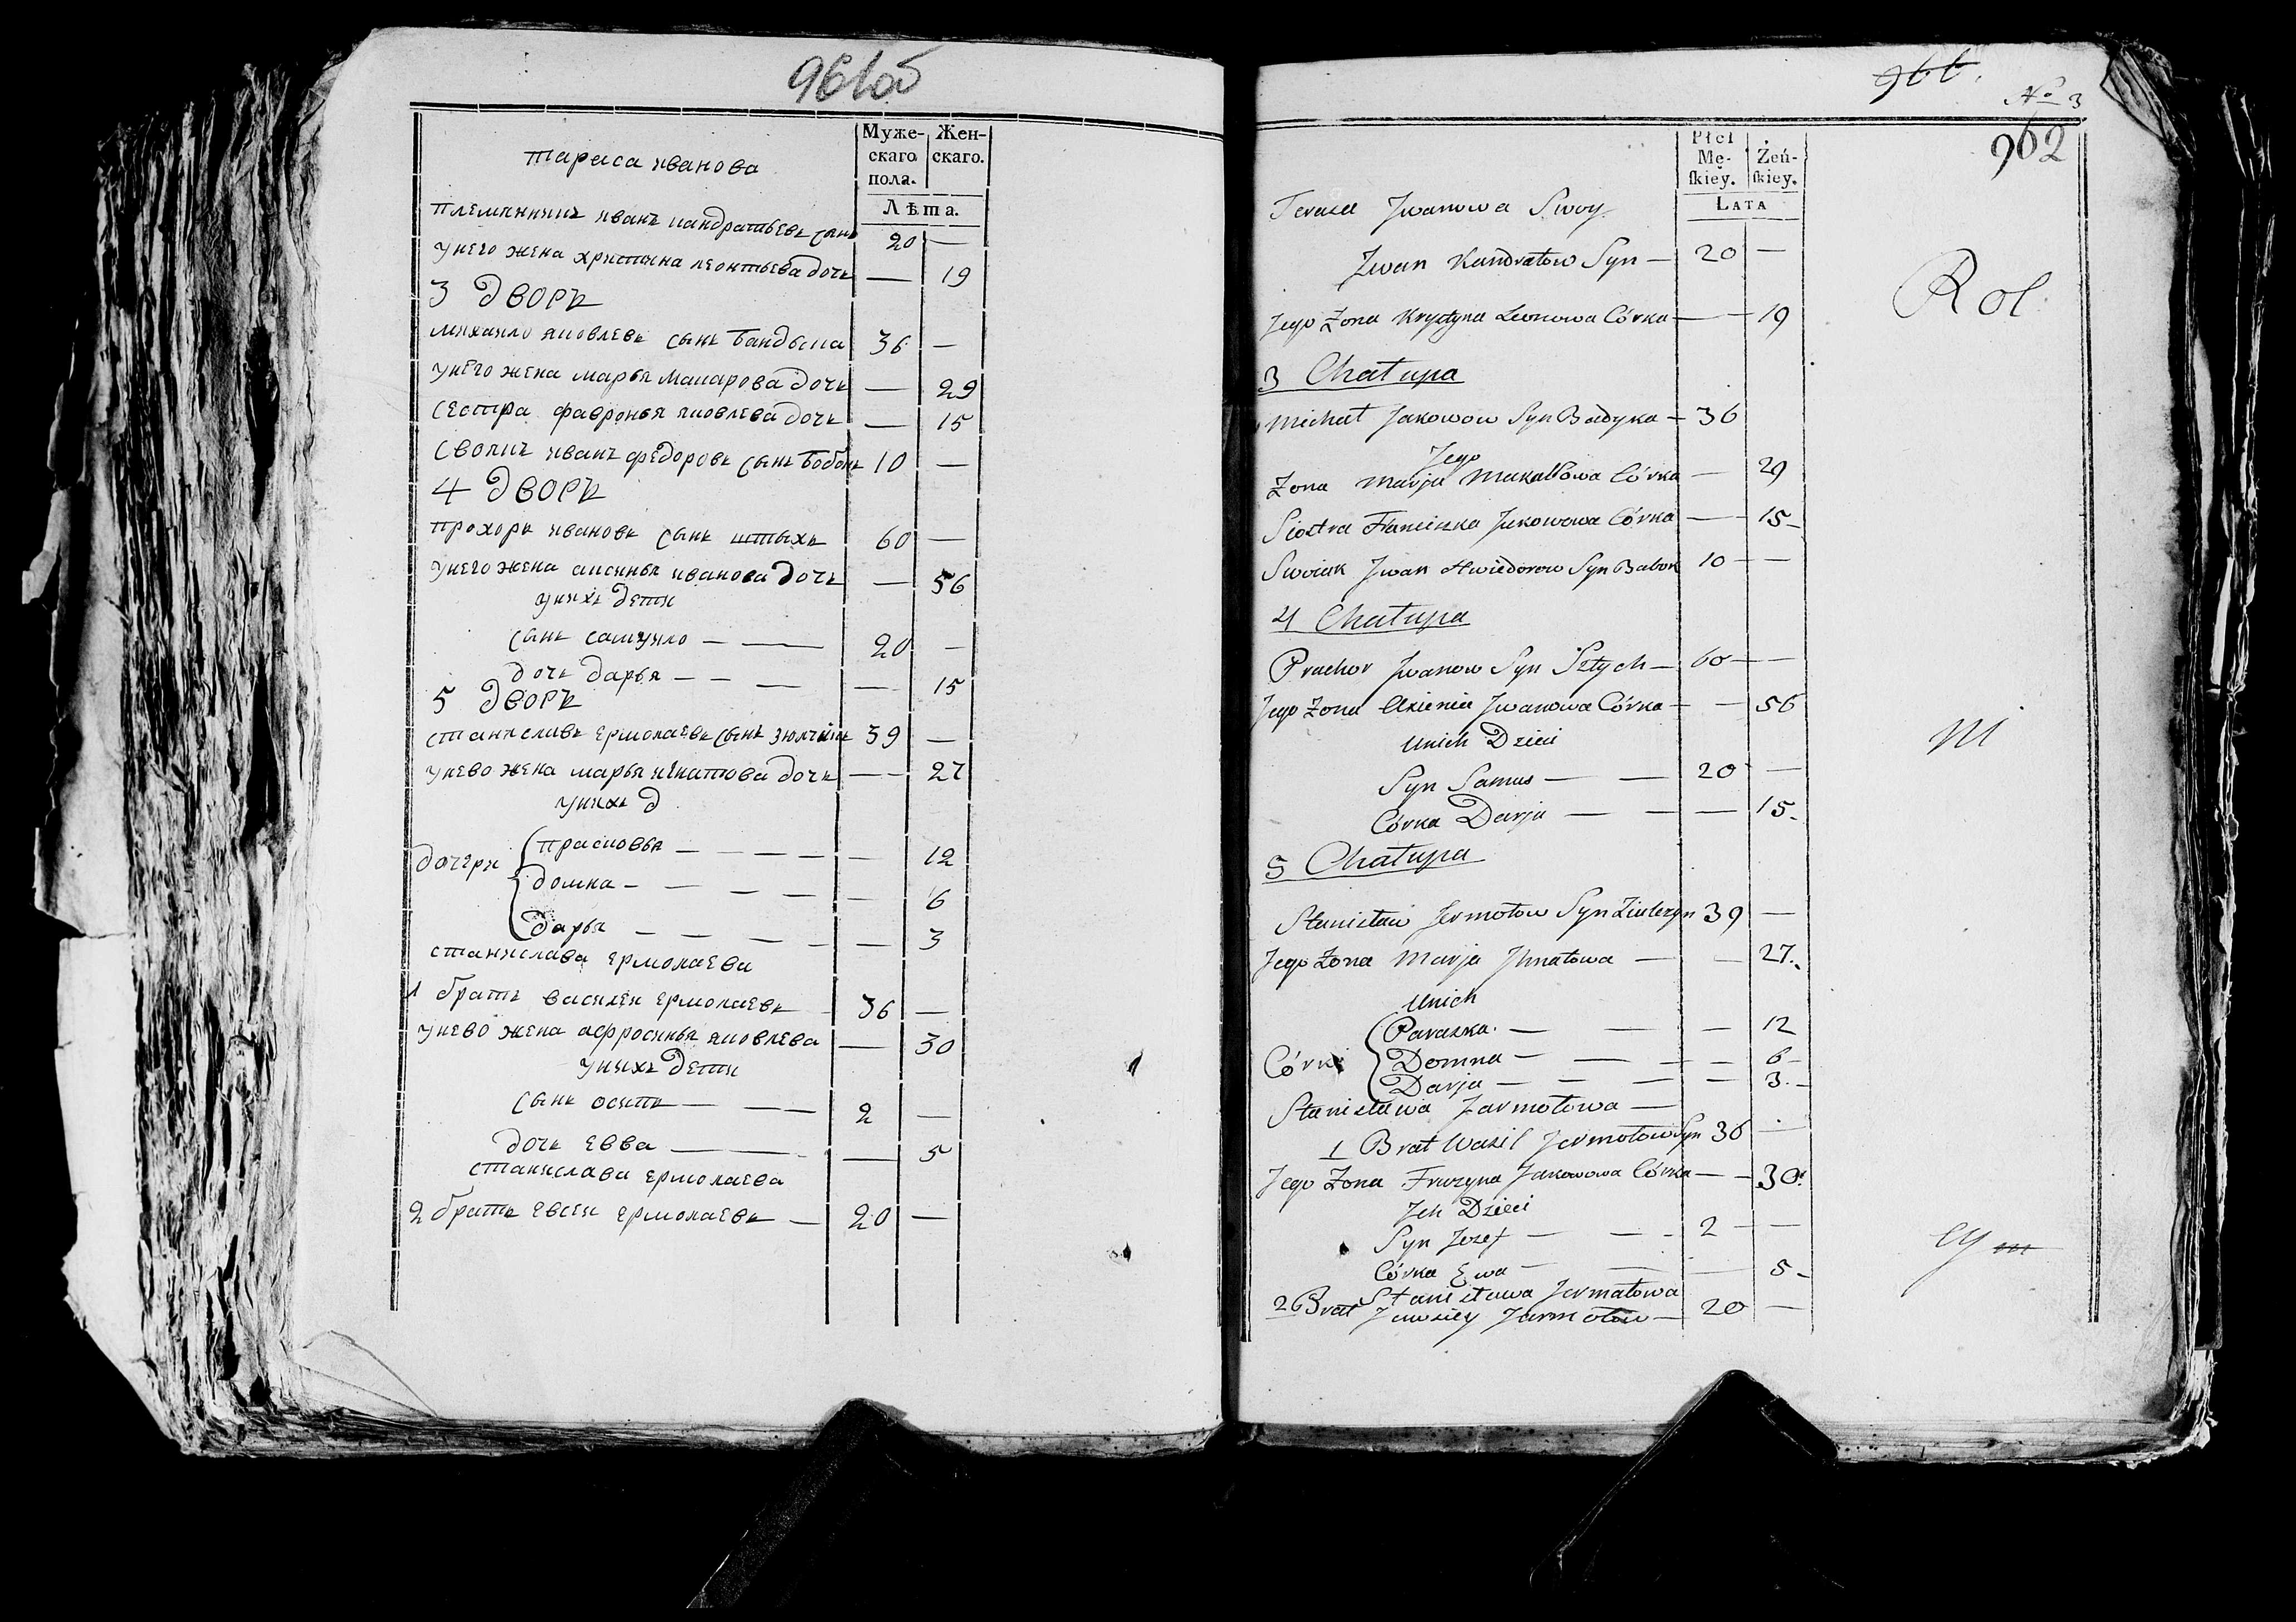 961об
Муже- Жен-
скаго скаго.
пола.
Лѣта.
тараса иванова
племянникъ иванъ кандратьевъ сынъ 20 —
унего жена христина леонтьева дочь — 19
3 дворъ
михаило яковлевъ сынъ бандыка 36 —
унего жена марья макарова дочь — 29
сестра фавронья яковлева дочь — 15
своякъ иванъ федоровъ сынъ бобокъ 10 —
4 дворъ
прохоръ ивановъ сынъ штыхъ 60 —
унего жена аксинья иванова дочь — 56
унихъ дети
сынъ самуило — — 20 —
дочь дарья — — — — 15
5 дворъ
станиславъ ермолаевъ сынъ 39 —
унево жена марья игнатова дочь — 27
унихъ д
дочери прасковья — — — — — 12
домна — — — — — 6
дарья — — — — — 3
станислава ермолаева
1 братъ василеи ермолаевъ 36 —
унево жена афросинья яковлева — 30
унихъ дети
сынъ осипъ — — — 2 —
дочь евва — — — — 5
станислава ермолаева
2 братъ евсеи ермолаевъ — 20 —
966.
№ 3
962
Płci
Mę- Żeń-
ſkiey. ſkiey.
LATA
Tarasa Jwanowa Swoy
Jwan Kandratow Syn — 20 —
Jego Żona Krystyna Leonowa Córka — — 19
Rol
3 Chałupa
Michał Jakowow Syn Badyka — 36
Jego
Żona Marja Makałowa Córka — 29
Siostra Franciszka Jakowowa Córka — 15 —
Swoiak Jwan Hwiedorow Syn Babok 10 —
4 Chałupa
Prachor Jwanow Syn Sztych — 60 — —
Jego Żona Axienia Jwanowa Córka — — 56
Unich Dzieci
Syn Samus — — 20 —
Córka Darja — — — 15 —
5 Chałupa
Stanisław Jermołow Syn 39 —
Jego Żona Marja Jhnatowa — — 27.
Unich
Córki Paraska. — — — 12
Domna — — — — 6 —
Darja — — — — 3. —
Stanisława Jarmołowa —
1 Brat Wasil Jermołow Syn 36 —
Jego Żona Fruzyna Jakowowa Córka — — 30.
Jch Dzieci
Syn Jozef — — — 2 — —
Córka Ewa — — — 5 —
Stanisława Jermałowa
2 Brat Jawsiey Jarmołow — 20 —